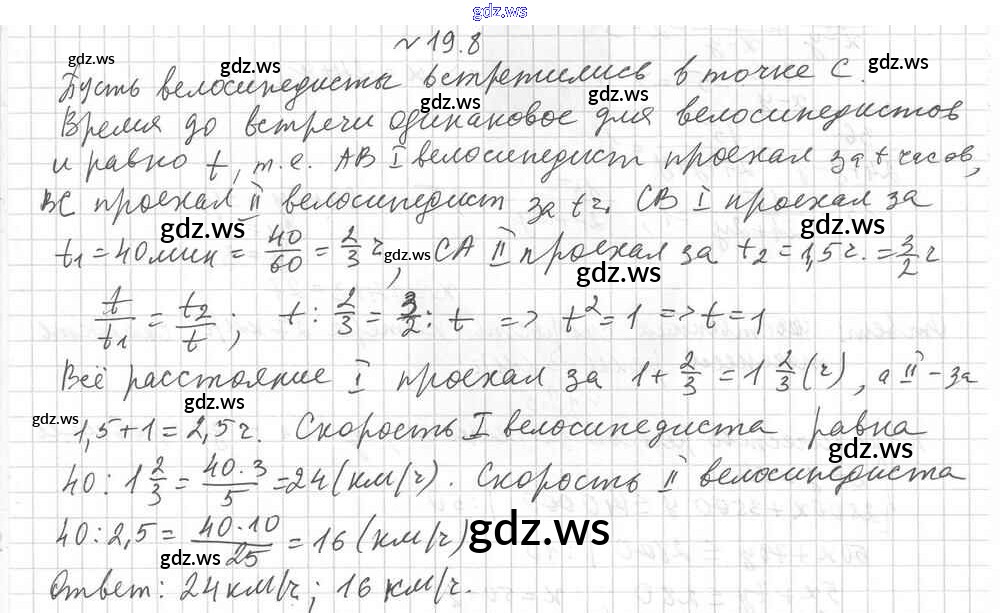 gdz.ws
№ 19.8
gdz.ws gdz.ws gdz.ws
Пусть велосипедисты встретились в точке С.
gdz.ws gdz.ws
Время до встречи одинаковое для велосипедистов
и равно t, т.е. АВ I велосипедист проехал за t часов,
ВС проехал II велосипедист за t ч. СВ I проехал за
gdz.ws gdz.ws
t₁ = 40 мин = 40/60 = 2/3 ч, СА II проехал за t₂ = 1,5 ч. = 3/2 ч
gdz.ws gdz.ws
t/t₁ = t₂/t; t : 2/3 = 3/2 : t => t² = 1 => t = 1
Всё расстояние I проехал за 1 + 2/3 = 1 2/3 (ч), а II - за
gdz.ws
1,5 + 1 = 2,5 ч. Скорость I велосипедиста равна
gdz.ws
40 : 1 2/3 = 40·3/5 = 24 (км/ч). Скорость II велосипедиста
40 : 2,5 = 40·10/25 = 16 (км/ч)
gdz.ws gdz.ws
Ответ: 24 км/ч; 16 км/ч.